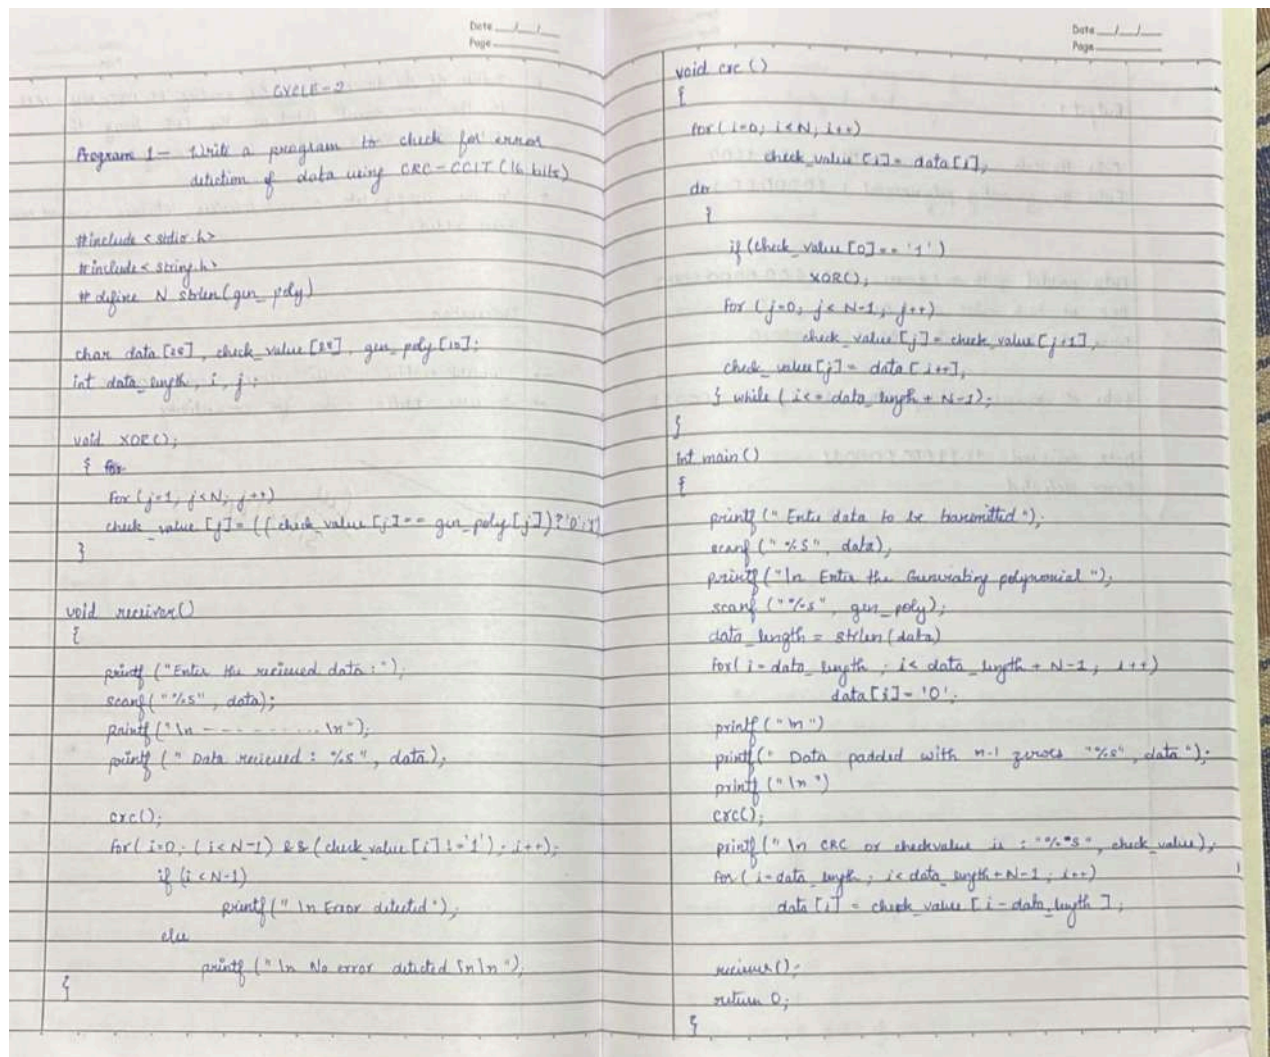 Date __/__/__
Page
CYCLE-2
Program 1- Write a program to check for error
detection of data using CRC-CCIT (16 bits)
#include <stdio.h>
#include <string.h>
# define N strlen(gen_poly)
char data [28], check_value [28], gen_poly [10];
int data_length, i, j;
void XOR();
{ for
for (j=1; j<N; j++)
check_value [j]= (( check_value [j]== gen_poly [j])?'0':'1'
}
void reciver()
{
printf ("Enter the recieved data:");
scanf ("%s", data);
printf ("\n - - - - - ... \n");
printf (" Data recieved : %s", data);
crc();
for( i=0; (i<N-1) && (check_value [i] !='1'); i++);
if (i<N-1)
printf (" \n Error detected");
else
printf (" \n No error detected \n\n");
}
Date __/__/__
Page
void crc ()
{
for( i=0; i<N; i++)
check_value [i]= data [i];
do
{
if (check_value [0]== '1')
XOR();
for (j=0; j<N-1; j++)
check_value [j]= check_value [j+1];
check_value [j]= data [i++];
} while ( i<= data_length + N-1);
}
int main()
{
printf (" Enter data to be transmitted");
scanf (" %s", data);
printf ("\n Enter the Generating polynomial ");
scanf ("%s", gen_poly);
data_length = strlen (data)
for( i=data_length ; i< data_length + N-1 ; i++)
data [i]= '0';
printf (" \n ")
printf (" Data padded with n-1 zeroes "%s", data");
printf (" \n ")
crc();
printf (" \n CRC or checkvalue is : "%s", check_value);
for ( i=data_length ; i< data_length + N-1 ; i++)
data [i] = check_value [ i-data_length ];
reciever();
return 0;
}